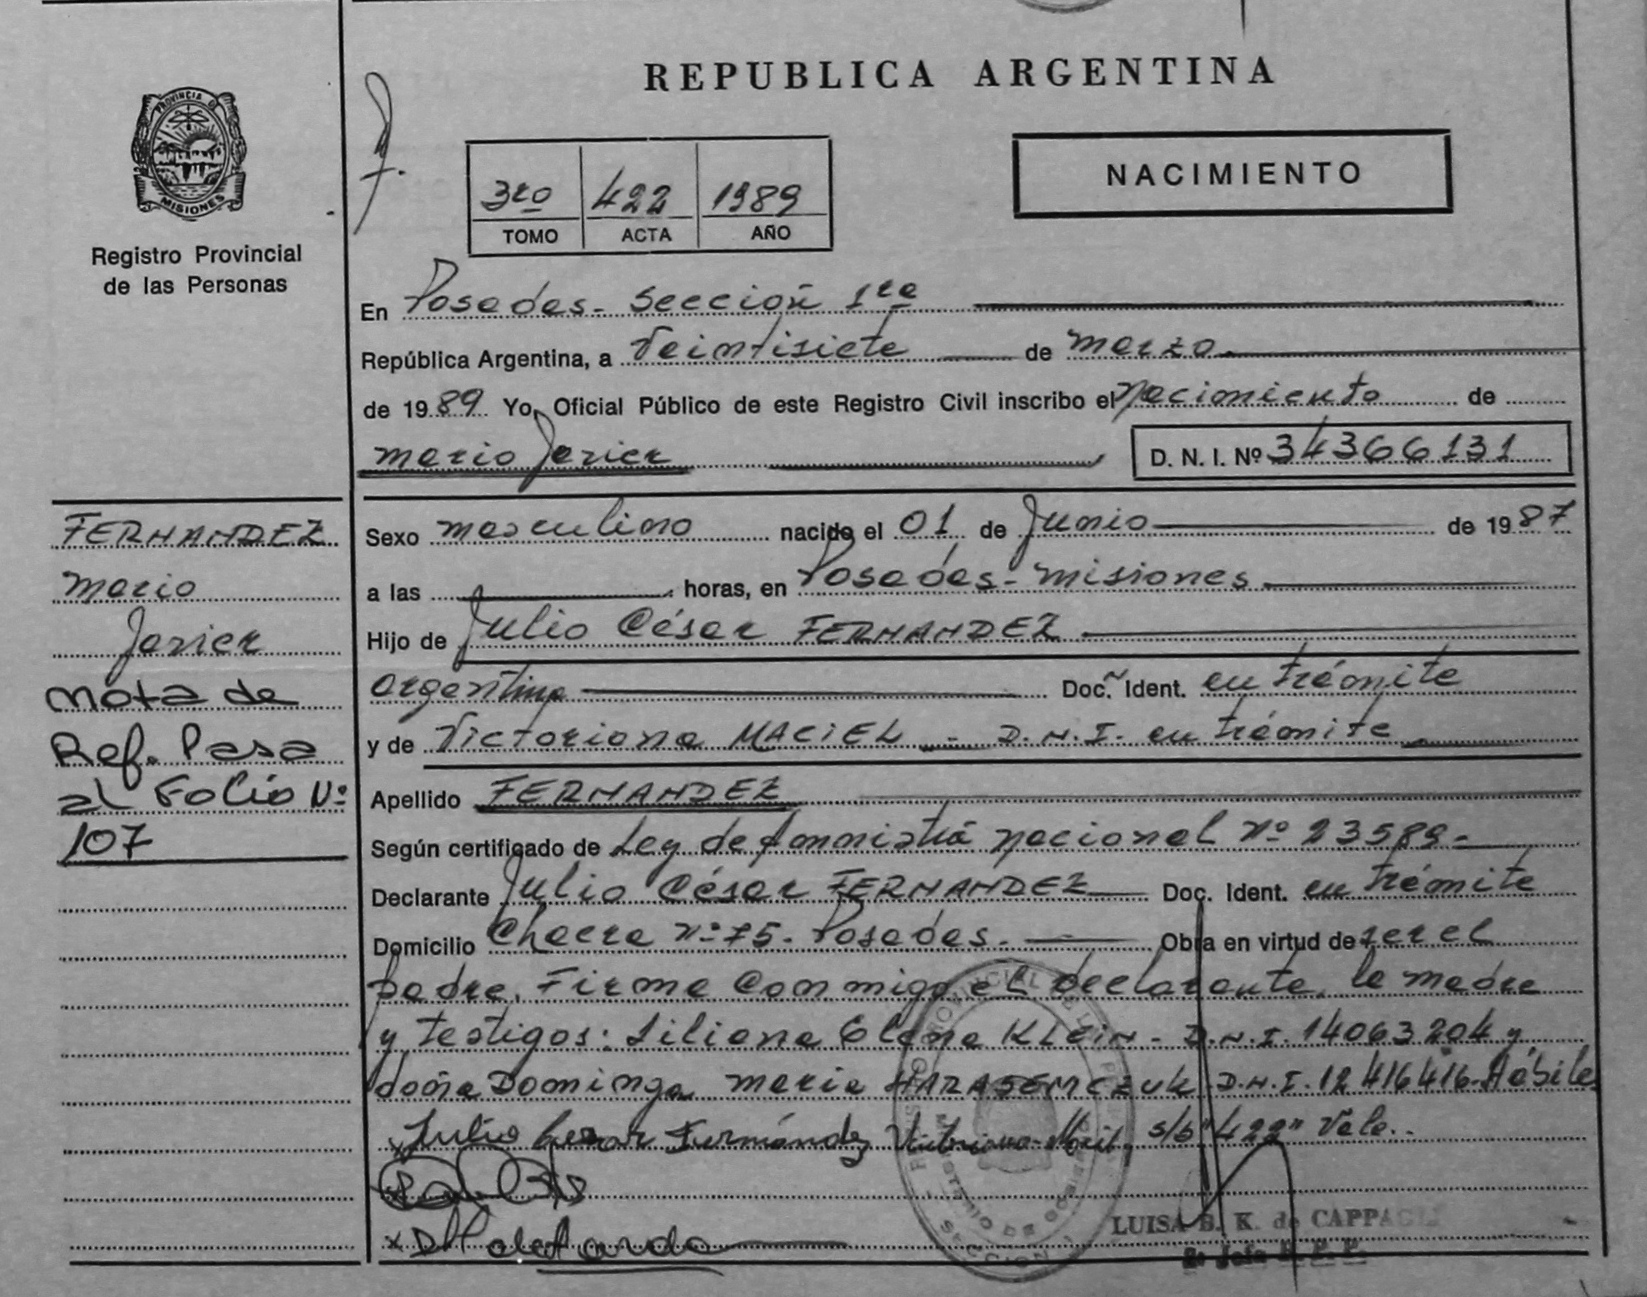 REPUBLICA ARGENTINA
PROVINCIA DE
MISIONES
Registro Provincial
de las Personas
3ro 422 1989
TOMO ACTA AÑO
NACIMIENTO
En Posadas - Sección 1ra
República Argentina, a Veintisiete de marzo
de 1989 Yo, Oficial Público de este Registro Civil inscribo el nacimiento de
mario Javier D. N. I. Nº 34366131
FERNANDEZ
mario
Javier
Nota de
Ref. Pasa
al Folio Nº
107
Sexo masculino nacido el 01 de Junio de 1987
a las horas, en Posadas - misiones
Hijo de Julio César FERNANDEZ
argentina Doc. Ident. en trámite
y de Victoriana MACIEL - D.N.I. en trámite
Apellido FERNANDEZ
Según certificado de Ley de Amnistía nacional nº 23589 -
Declarante Julio César FERNANDEZ Doc. Ident. en trámite
Domicilio Chacra nº 75 - Posadas. Obra en virtud de ser el
padre. Firma conmigo el declarante, la madre
y testigos: Liliana Elena KLEIN - D.N.I. 14063204 y
doña Dominga maria HARASEMCZUK D.N.I. 12416416 - Hábiles
Julio Cesar Fernández Victoriana s/b "422" Vale.
LUISA B. K. de